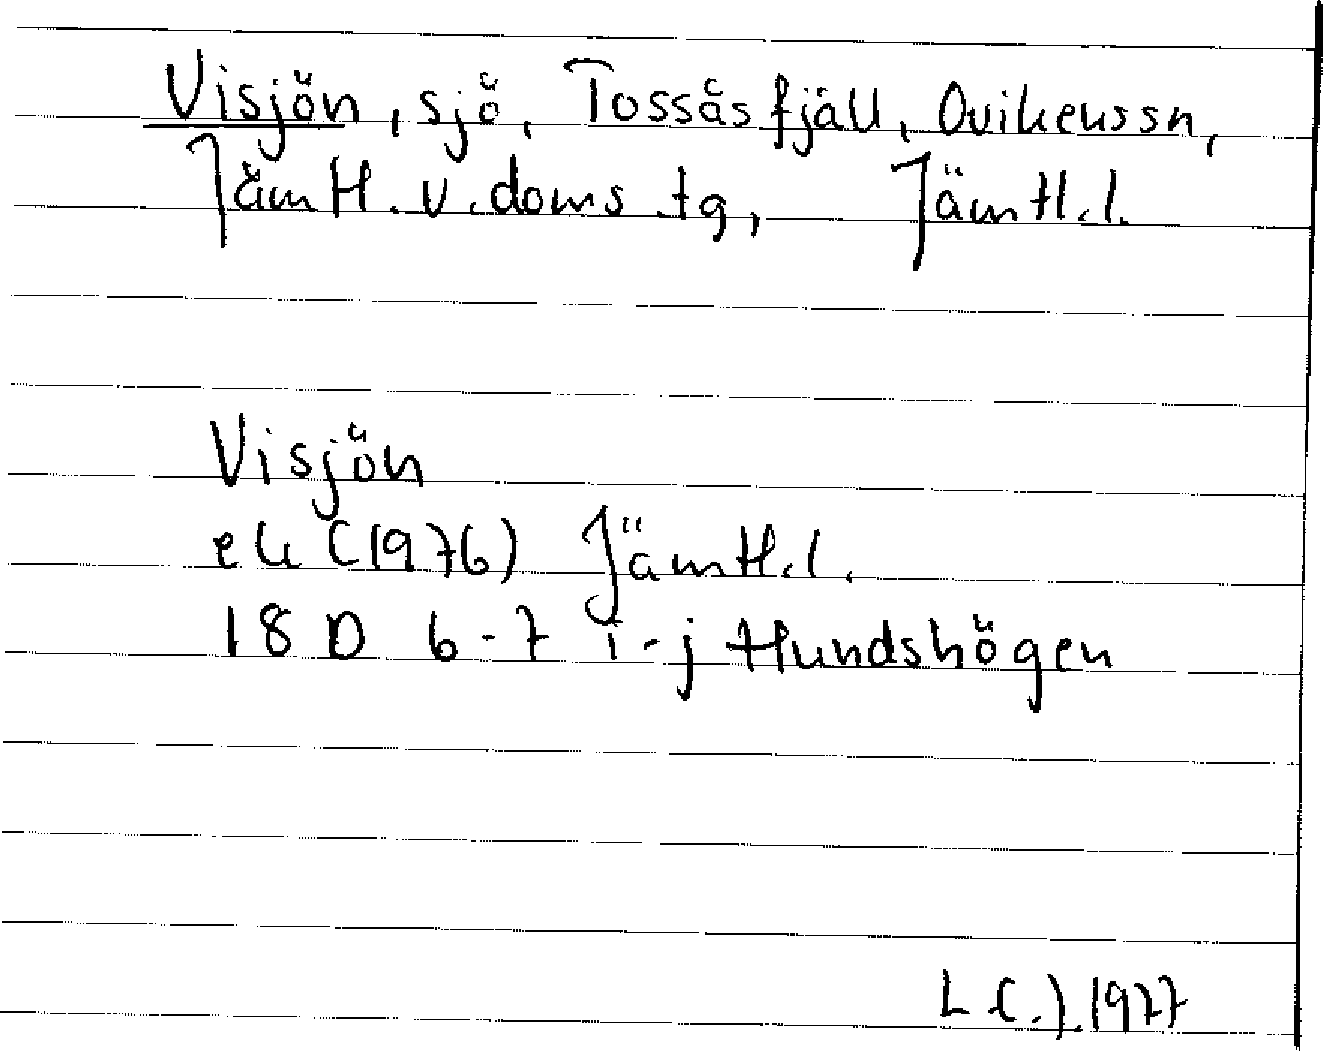 Visjön, sjö, Tossåsfjäll, Ovikenssn,
Jämtl. v. doms. tg, Jämtl.l.
Visjön
ek (1976) Jämtl.l.
18 D 6-7 i-j Hundshögen
L C.J. 1977